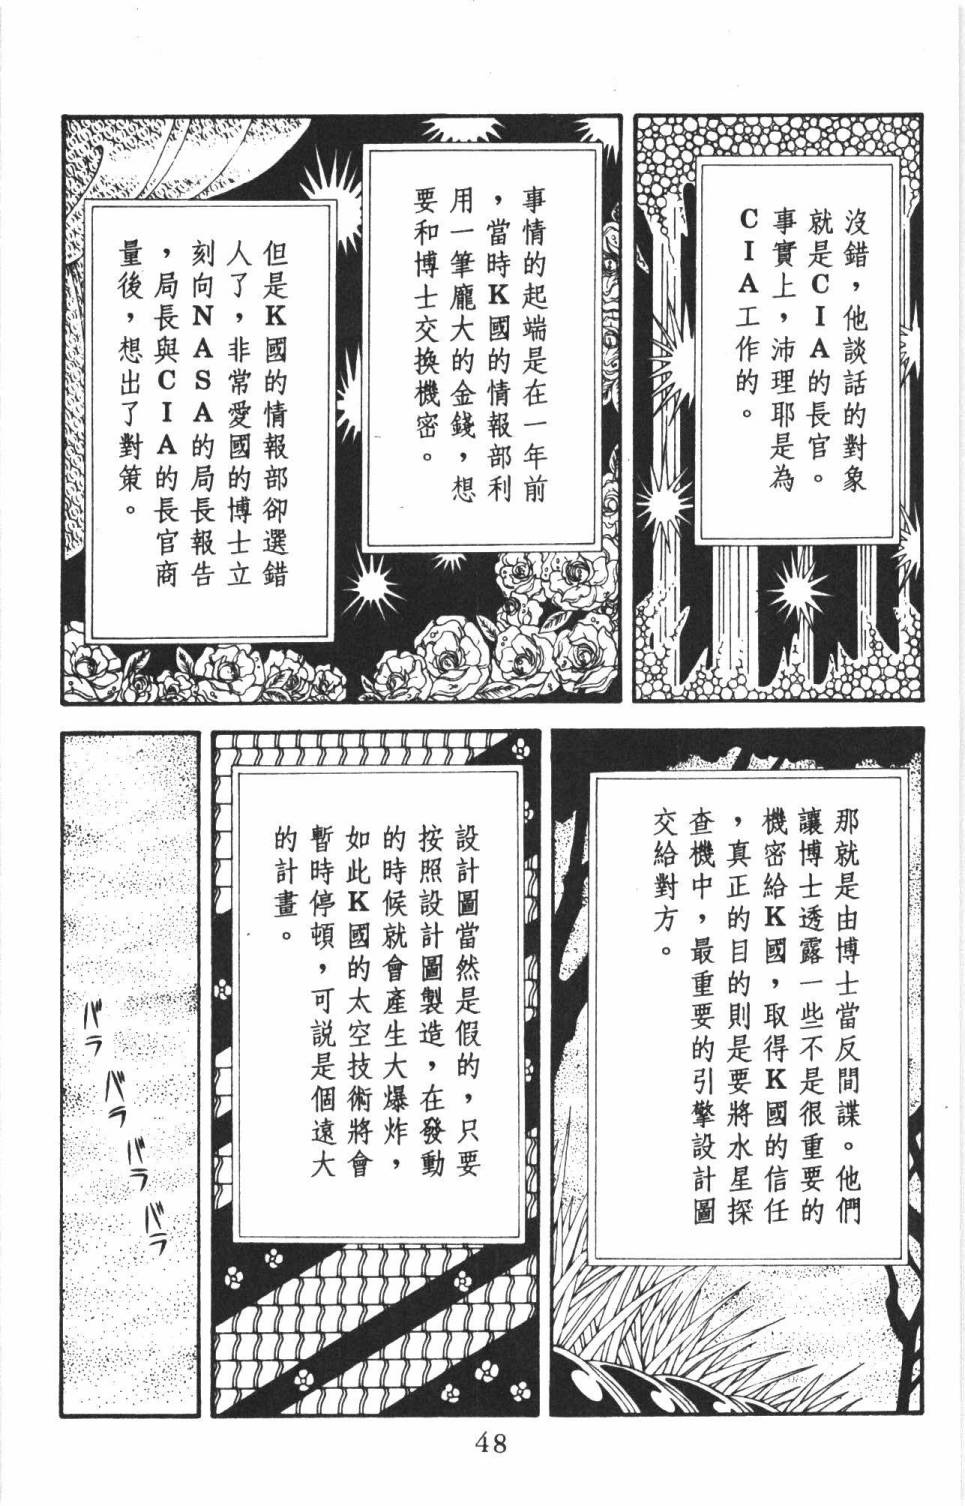 沒錯，他談話的對象
就是CIA的長官。
事實上，沛理耶是為
CIA工作的。
事情的起端是在一年前
，當時K國的情報部利
用一筆龐大的金錢，想
要和博士交換機密。
但是K國的情報部卻選錯
人了，非常愛國的博士立
刻向NASA的局長報告
，局長與CIA的長官商
量後，想出了對策。
那就是由博士當反間諜。他們
讓博士透露一些不是很重要的
機密給K國，取得K國的信任
，真正的目的則是要將水星探
查機中，最重要的引擎設計圖
交給對方。
設計圖當然是假的，只要
按照設計圖製造，在發動
的時候就會產生大爆炸，
如此K國的太空技術將會
暫時停頓，可說是個遠大
的計畫。
バラ
バラ
バラ
バラ
48